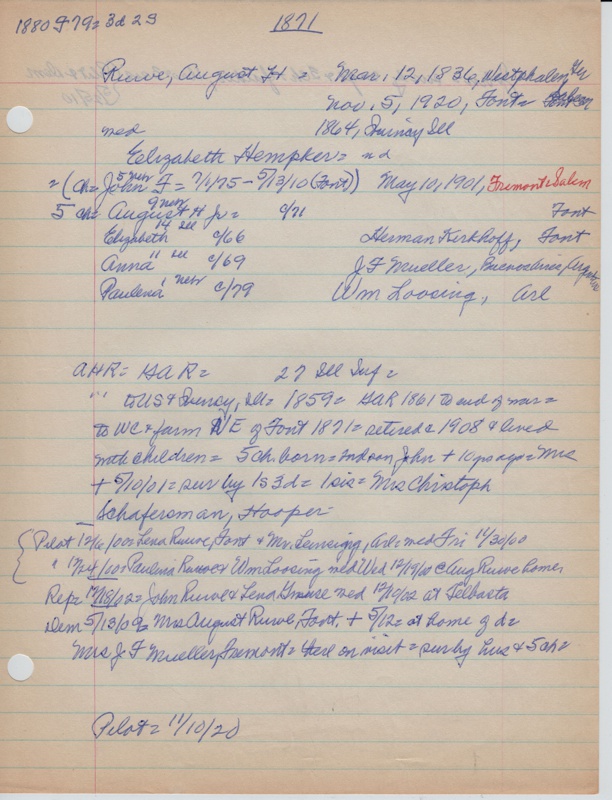 1880 F 79 = 3d 2S
1871
Ruwe, August H = Mar, 12, 1836, Westphalen, Ger
Nov. 5, 1920, Font =
med 1864, Quincy Ill
Elizabeth Hempker = nd
= (Ch = John F = 7/1/75 - 5/13/10 (Font)) May 10, 1901, Fremont = Salem
5 nebr
5 ch = August H Jr = c/71 Font
9 nebr
14 Ill
Elizabeth c/66 Herman Kerkhoff, Font
" Ill
Anna c/69 J F Mueller, Buenos Aires, Argentine
" nebr
Paulena c/79 Wm Loosing, Arl
AHR = GAR = 27 Ill Inf =
" to US & Quincy, Ill = 1859 = GAR 1861 to end of war =
to WC & farm NE of Font 1871 = retired c 1908 & lived
with children = 5 ch. born = and son John + 10 yrs ago = Mrs
+ 5/10/01 = sur by 1S 3d = 1 sis = Mrs Christoph
Schafersman, Hooper =
Pilot 12/6/00 = Lena Ruwe, Font & Mr. Arl = med Fri 11/30/00
" 12/24/00 = Paulina Ruwe & Wm Loosing med Wed 12/19/00 c Aug Ruwe home =
Rep = 12/18/02 = John Ruwe & Lena med 12/10/02 at Telbasta
Dem 5/13/09 = Mrs August Ruwe, Font, + 5/12 = at home of d =
Mrs J F Mueller, Fremont = Here on visit = sur by hus & 5 ch =
Pilot = 11/10/20